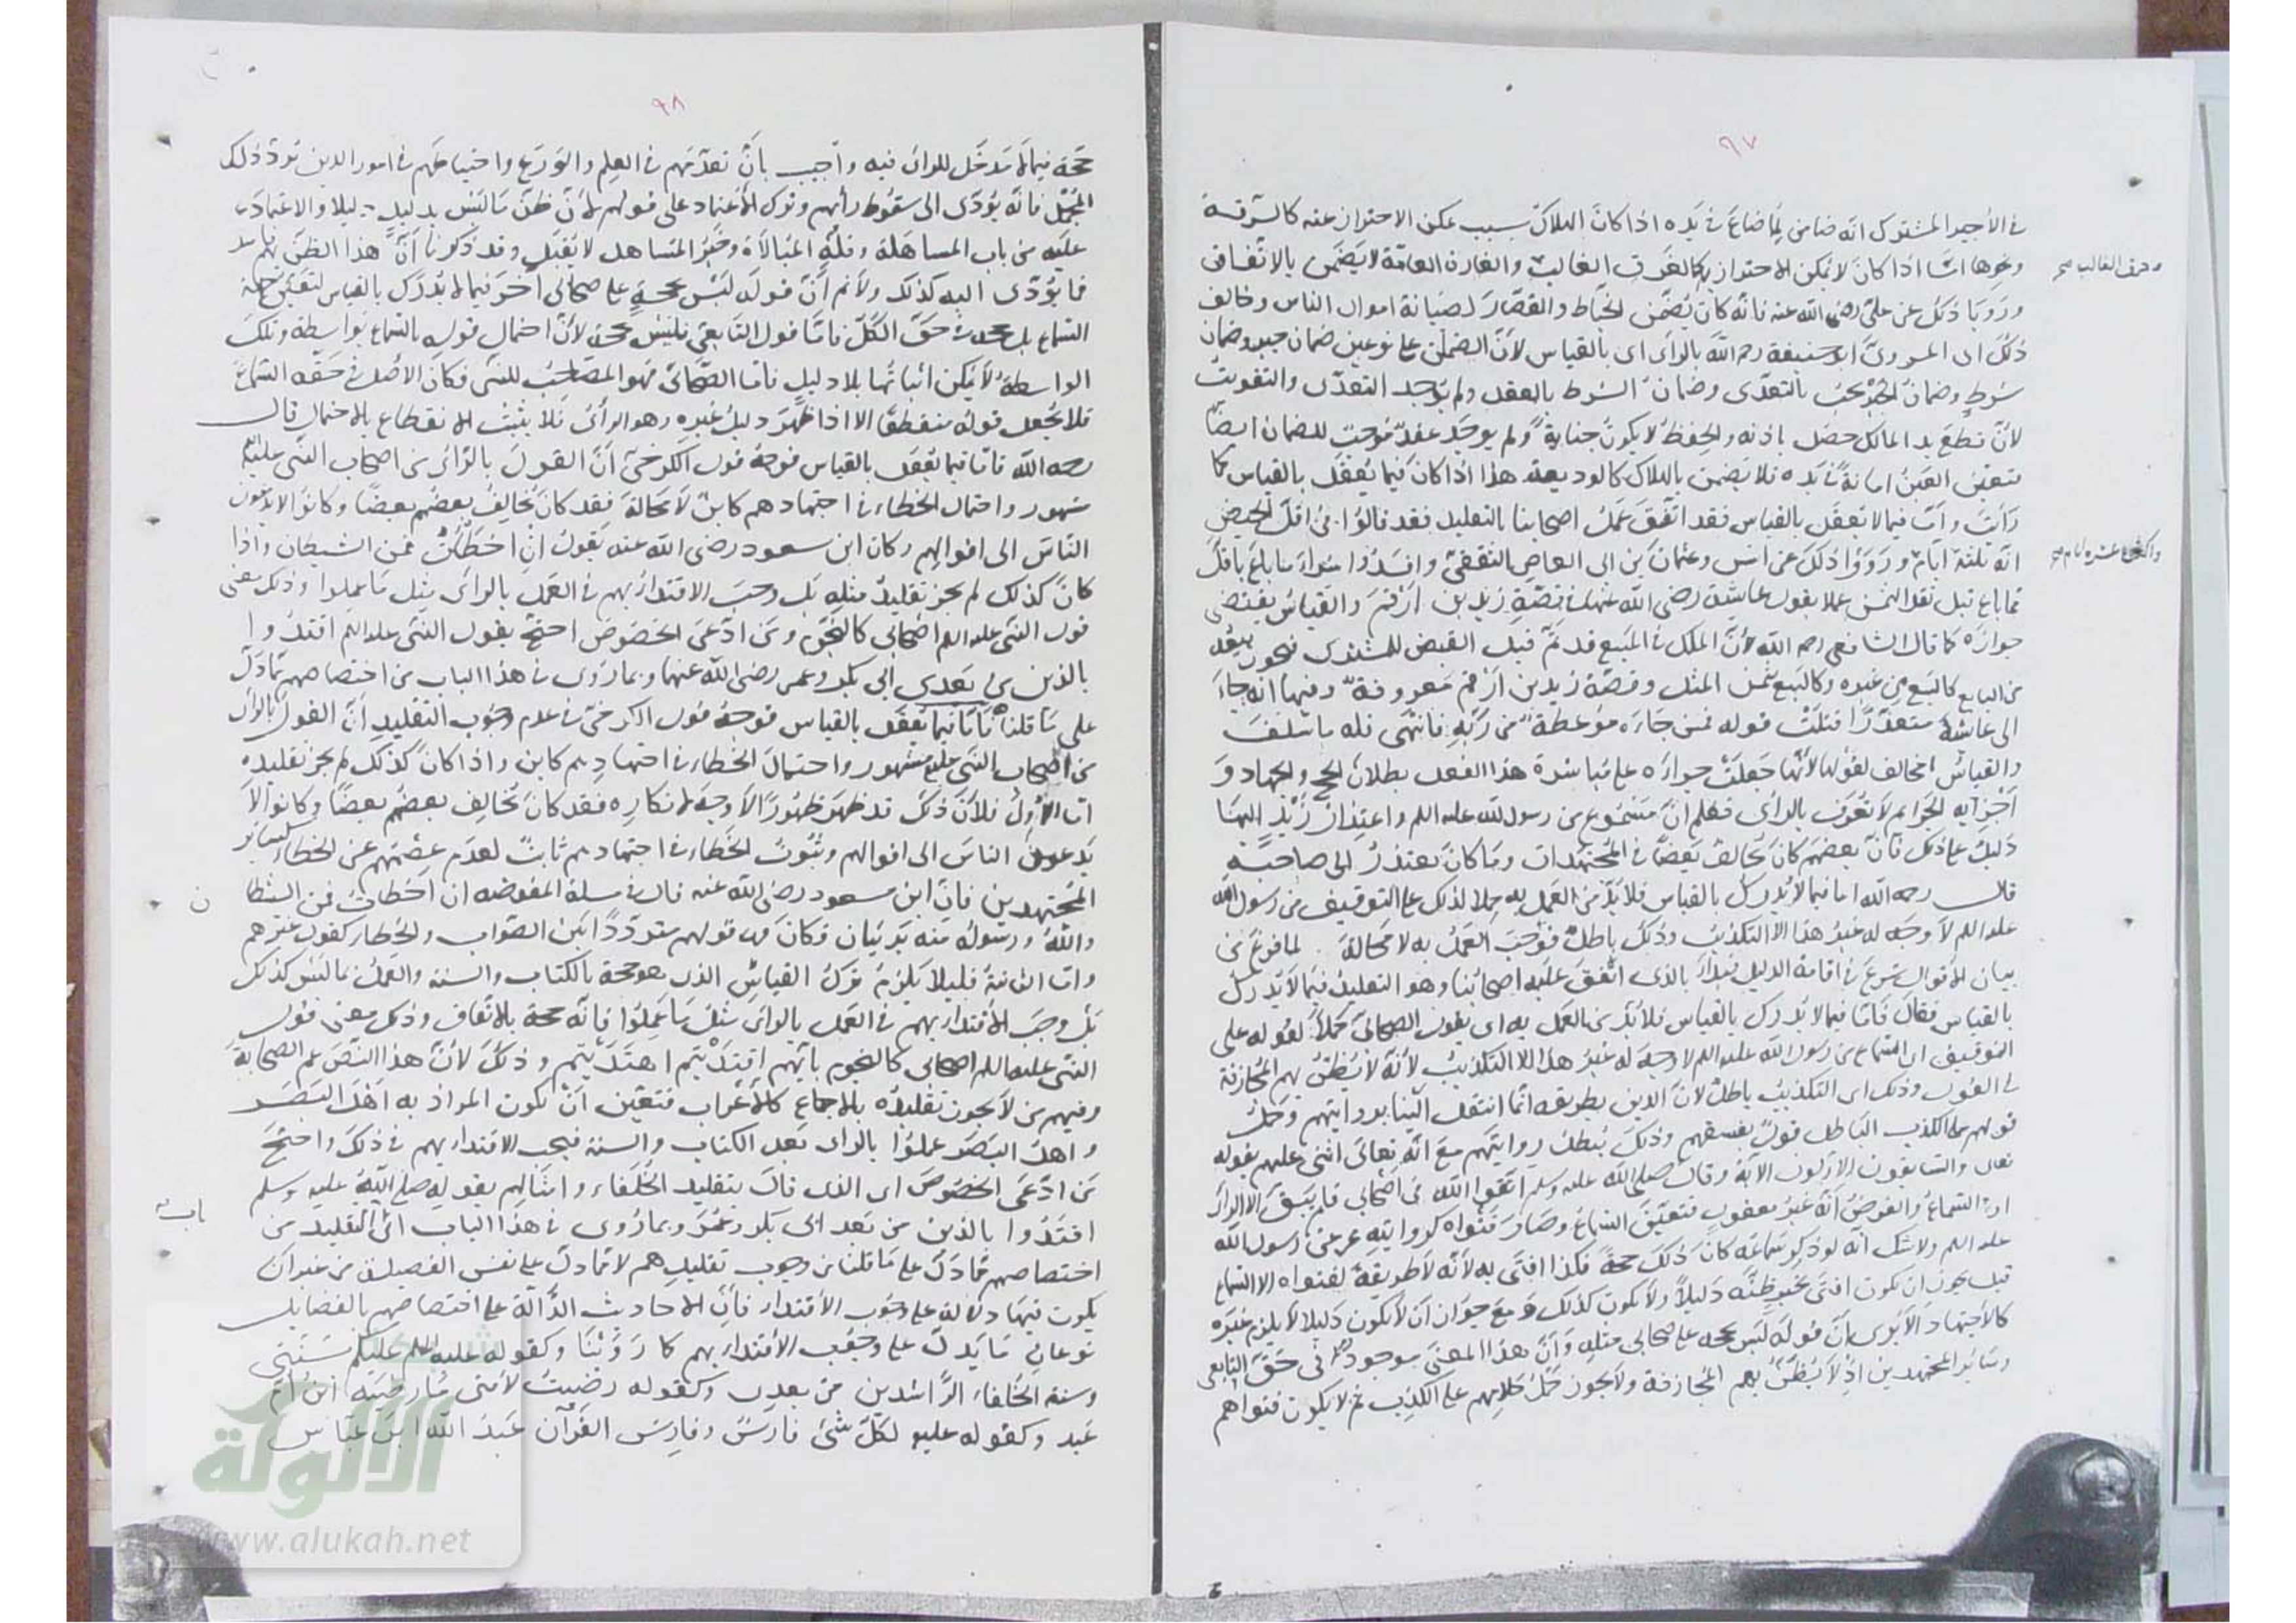 ٩٧
في الأجير المشترك انه ضامن لما ضاع في يده اذا كان الهلاك بسبب يمكن الاحتراز عنه كالسرقة
ونحوها امّا اذا كان لا يمكن الاحتراز كالغرق الغالب والغارة العامّة لا يضمن بالاتفاق
والحرق الغالب صح
ورويا ذلك عن علي رضي الله عنه فانه كان يضمن الخياط والقصّار لصيانة اموال الناس وخالف
ذلك اى المروىّ ابو حنيفة رحمه الله بالراى اى بالقياس لأنّ الضمان على نوعين ضمان جبر وضمان
شرط وضمان الجبر يجب بالتعدّى وضمان الشرط بالعقد ولم يوجد التعدّى والتفويت
لأنّ قطع يد المالك حصل باذنه والحفظ لا يكون جناية ولم يوجد عقد موجب للضمان ايضًا
فتعيّن العين امانة في يده فلا يضمن بالهلاك كالوديعة هذا اذا كان فيما يعقل بالقياس كما
رأيت وأمّا فيما لا يعقل بالقياس فقد اتفق عمل اصحابنا بالتقليد فقد قالوا في اقلّ الحيض
انه ثلثة ايّام ورووا ذلك عن انس وعثمان بن ابى العاص الثقفىّ وافسدوا شراء ما باع باقل
واكثره عشرة ايام صح
مما باع قبل نقد الثمن عملا بقول عايشة رضي الله عنها في قصّة زيد بن ارقم والقياس يقتضى
جوازه كما قال الشافعى رحمه الله لأنّ الملك في المبيع قد تمّ قبل القبض للمشترى فيجوز بيعه
من البايع كالبيع من غيره وكالبيع بثمن المثل وقصّة زيد بن ارقم معروفة وفيها انه جاء
الى عائشة معتذرًا فتلت قوله فمن جاءه موعظة من ربّه فانتهى فله ما سلف
والقياس مخالف لقولها لأنّها جعلت جزاءه على مباشرة هذا الفعل بطلان الحج والجهاد و
أجزاية الجرائم لا تعرف بالراى فعلم انّ مسموع من رسول الله عليه السلم واعتذار زيد اليها
دليل على ذلك فانّ بعضهم كان يخالف بعضًا في المجتهدات وما كان يعتذر الى صاحبه
قال رحمه الله اما فيما لا يدرك بالقياس فلا بدّ من العمل به حملا لذلك على التوقيف من رسول الله
عليه السلم لا وجه له غير هذا الا التكذيب وذلك باطل فوجب العمل به لا محالة لما فرغ من
بيان الأقوال شرع في اقامة الدليل فبدأ بالذى اتفق عليه اصحابنا وهو التقليد فيما لا يدرك
بالقياس فقال فأمّا فيما لا يدرك بالقياس فلا بدّ من العمل به اى بقول الصحابىّ حملًا لقوله على
التوقيف اى السماع من رسول الله عليه السلم لا وجه له غير هذا الا التكذيب لأنّه لا يظنّ بهم المجازفة
في القول وذلك اى التكذيب باطل لانّ الدين بطريقه انّما انتقل الينا بروايتهم وحمل
قولهم على الكذب الباطل قول بفسقهم وذلك يبطل روايتهم مع انّه تعالى اثنى عليهم بقوله
تعالى والسابقون الاوّلون الآية وقال صلى الله عليه وسلم اتقوا الله في اصحابى فلم يبق الا الراى
او السماع والفرض انّه غير معقول فتعيّن السماع وصار فتواه كروايته عن رسول الله
عليه السلم ولا شك انه لو ذكر سماعه كان ذلك حجةً فكذا افتى به لأنّه لا طريق لفتواه الا السماع
قيل يجوز ان يكون افتى بخبر ظنّه دليلًا ولا يكون كذلك ومع جواز ان لا يكون دليلا لا يلزم غيره
كالاجتهاد ألا يرى انّ قوله ليس بحجه على صحابى مثله وأنّ هذا المعنى موجود في حقّ التابعى
وسائر المجتهدين اذ لا يظنّ بهم المجازفة ولا يجوز حمل كلامهم على الكذب ثم لا يكون فتواهم
٩٨
حجة فيما لا مدخل للراى فيه وأجيب بانّ تقدّمهم في العلم والورع واحتياطهم في امور الدين تردّ ذلك
المحمل فانّه يؤدّى الى سقوط رأيهم وترك الاعتماد على قولهم لأن ظنّ ما ليس بدليل دليلا والاعتماد
عليه من باب المساهلة وقلّة المبالاة وخبر المتساهل لا يقبل وقد ذكرنا أنّ هذا الظنّ بهم فاسد
فما يؤدّى اليه كذلك ولا نم أنّ قوله ليس بحجةٍ على صحابى آخر فيما لا يدرك بالقياس لتعيّن جهة
السماع بل حجة في حقّ الكلّ فامّا قول التابعىّ فليس بحجة لأنّ احتمال قوله بالسماع بواسطة وتلك
الواسطة لا يمكن اثباتها بلا دليل فامّا الصحابىّ فهو المصاحب للنبى فكان الأصل في حقّه السماع
فلا يجعل قوله منقطعًا الا اذا ظهر دليل غيره وهو الراى فلا يثبت الانقطاع بالاحتمال قال
رحمه الله فامّا فيما يعقل بالقياس فوجه قول الكرخىّ أنّ القول بالراى من اصحاب النبى عليه
مشهور واحتمال الخطاء في اجتهادهم كائن لا محالة فقد كان يخالف بعضهم بعضًا وكانوا لا يدعون
الناس الى اقوالهم وكان ابن مسعود رضى الله عنه يقول ان اخطأت فمن الشيطان واذا
كان كذلك لم يجز تقليد مثله بل وجب الاقتداء بهم في العمل بالراى مثل ما عملوا وذلك معنى
قول النبى عليه السلم اصحابى كالنجوم ومن ادّعى الخصوص احتجّ بقول النبى عليه السلم اقتدوا
بالذين من بعدى ابى بكر وعمر رضى الله عنهما وبما روى في هذا الباب من اختصاصهم مما دلّ
على ما قلنا فأمّا فيما يعقل بالقياس فوجه قول الكرخىّ في عدم وجوب التقليد انّ القول بالراى
من اصحاب النبى عليه مشهور واحتمال الخطاء في اجتهادهم كاين واذا كان كذلك لم يجز تقليده
امّا الأول فلأنّ ذلك قد ظهر ظهورًا لا وجه لانكاره فقد كان يخالف بعضهم بعضًا وكانوا لا
يدعون الناس الى اقوالهم وثبوت الخطاء في اجتهادهم ثابت لعدم عصمتهم عن الخطاء كساير
المجتهدين فانّ ابن مسعود رضى الله عنه قال في مسئلة المفوضه ان اخطأت فمن الشيطا
ن
والله ورسوله منه بريئان وكان قولهم متردّدًا بين الصواب والخطاء كقول غيرهم
وامّا الثانية فليلا يلزم ترك القياس الذى هو حجة بالكتاب والسنة والعمل بما ليس كذلك
بل وجب الاقتداء بهم في العمل بالراى مثل ما عملوا فانه حجة بالاتفاق وذلك معنى قول
النبى عليه السلم اصحابى كالنجوم بايّهم اقتديتم اهتديتم وذلك لأنّ هذا النصّ عمّ الصحابة
وفيهم من لا يجوز تقليده بالاجماع كالأعراب فتعيّن أنّ يكون المراد به أهل البصر
واهل البصر عملوا بالراى بعد الكتاب والسنة فيجب الاقتداء بهم في ذلك واحتجّ
من ادّعى الخصوص اى الذى قال بتقليد الخلفاء وامثالهم بقوله صلى الله عليه وسلم
اقتدوا بالذين من بعدى ابى بكر وعمر وبما روى في هذا الباب اى التقليد من
باب
اختصاصهم مما دلّ على ما قلنا من وجوب تقليدهم لا مما دلّ على نفس الفضيلة من غير ان
يكون فيها دلالة على وجوب الاقتداء فانّ الاحاديث الدّالّة على اختصاصهم بالفضايل
نوعان ما يدلّ على وجوب الاقتداء بهم كما روينا وكقوله عليه السلم عليكم بسنّتى
وسنة الخلفاء الرّاشدين من بعدى وكقوله رضيت لأمّتى ما رضيه ابن أمّ
عبد وكقوله عليه لكلّ شئ فارس وفارس القرآن عبد الله ابن عبّاس
شبكة
الألوكة
www.alukah.net